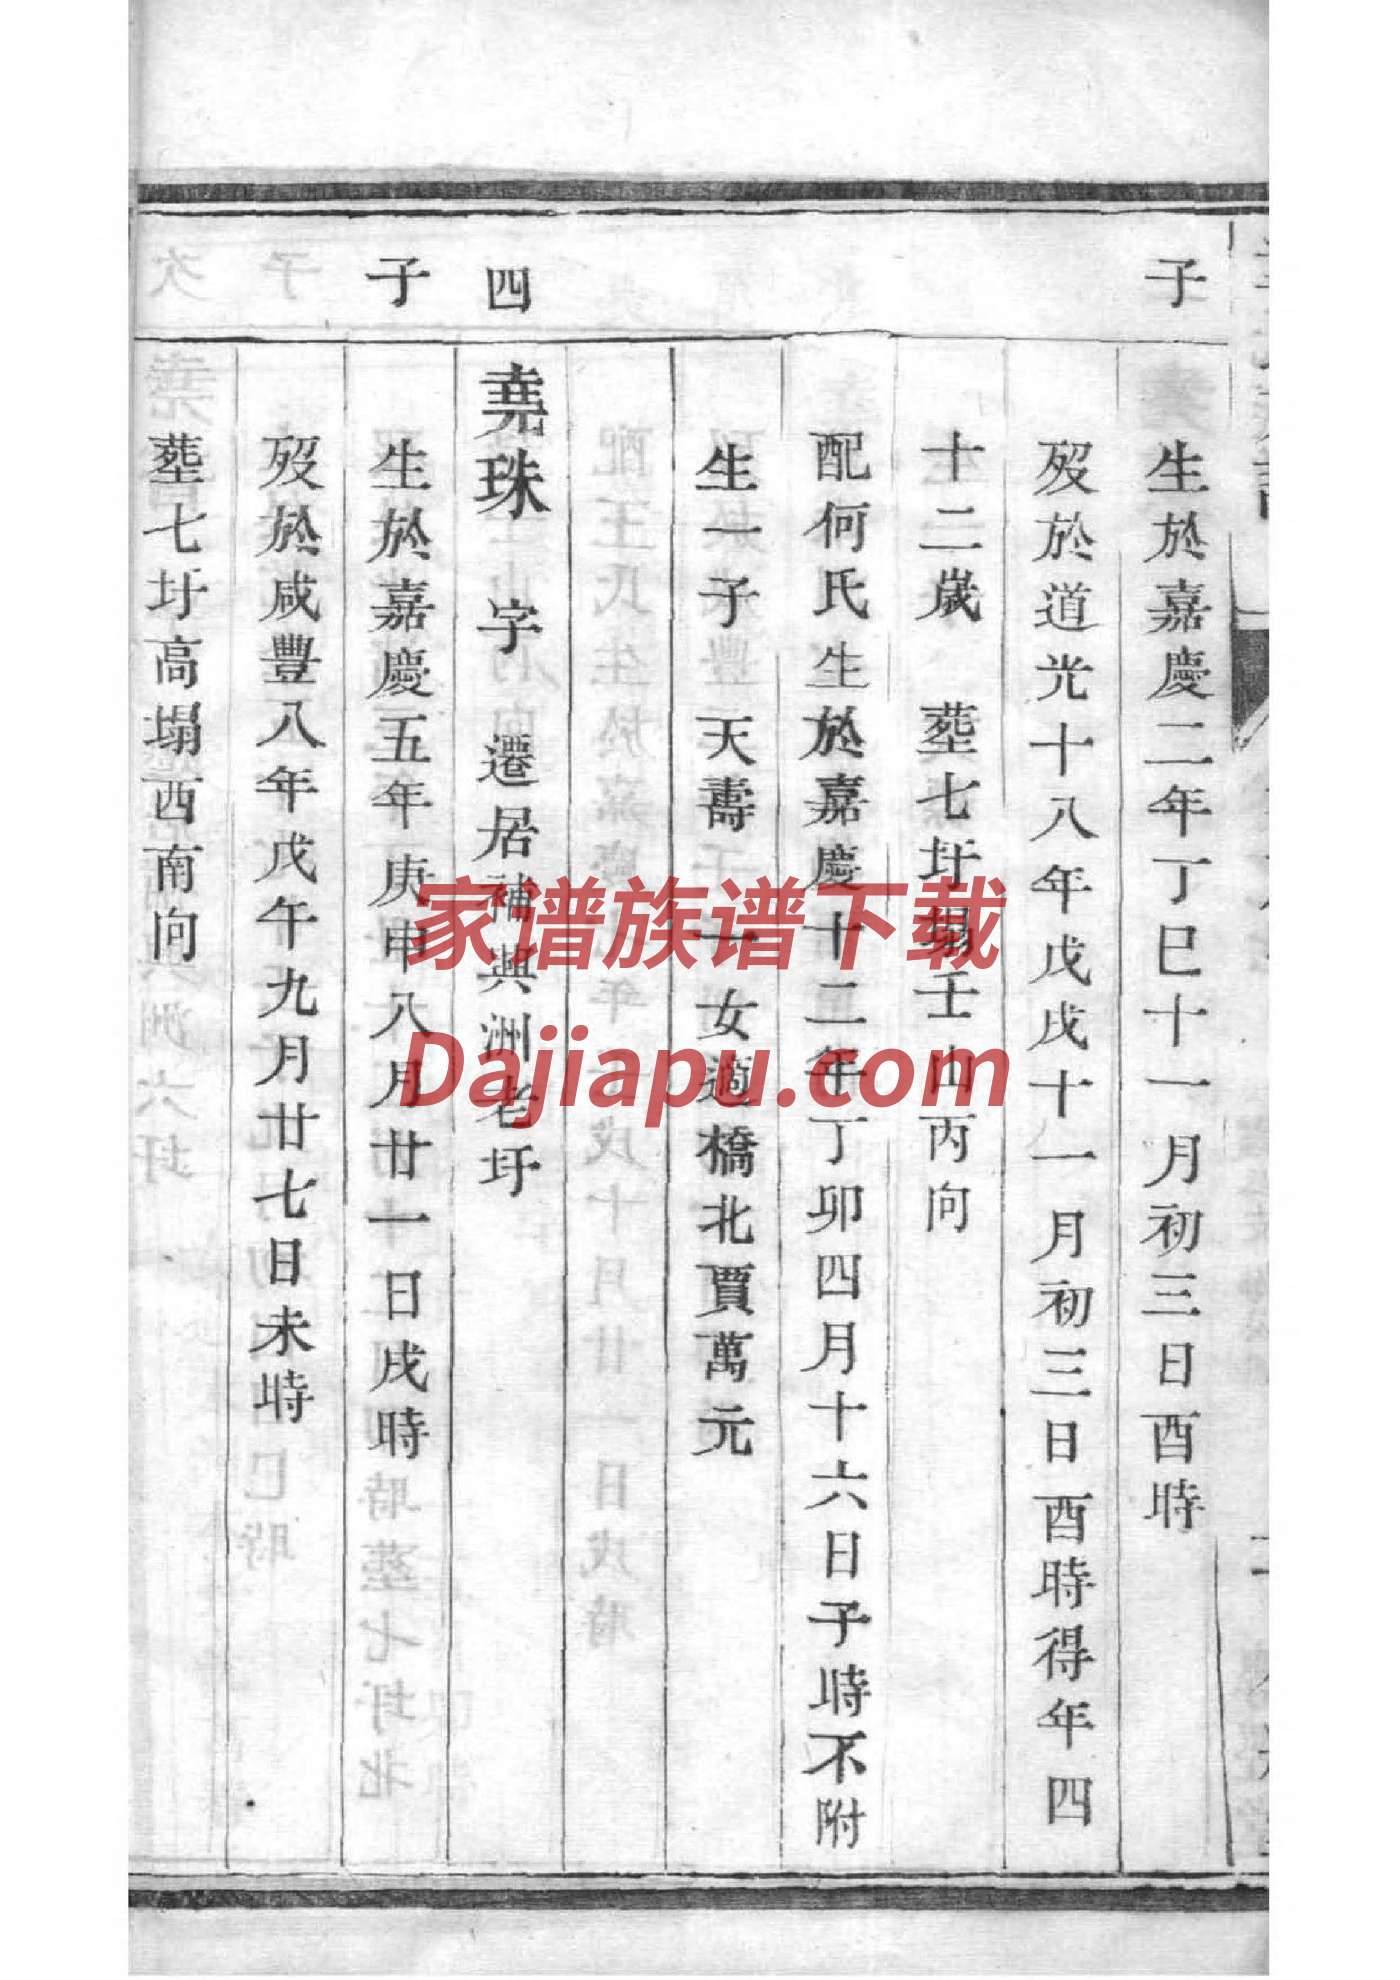 子
生於嘉慶二年丁巳十一月初三日酉時
歿於道光十八年戊戌十一月初三日酉時得年四
十二歲 葬七圩塌壬山丙向
配何氏生於嘉慶十二年丁卯四月十六日子時不附
生一子 天壽 一女適橋北賈萬元
四
堯珠 字 遷居補與洲老圩
子
生於嘉慶五年庚申八月廿一日戌時
歿於咸豐八年戊午九月廿七日未時
葬七圩高塌西南向
家谱族谱下载
Dajiapu.com